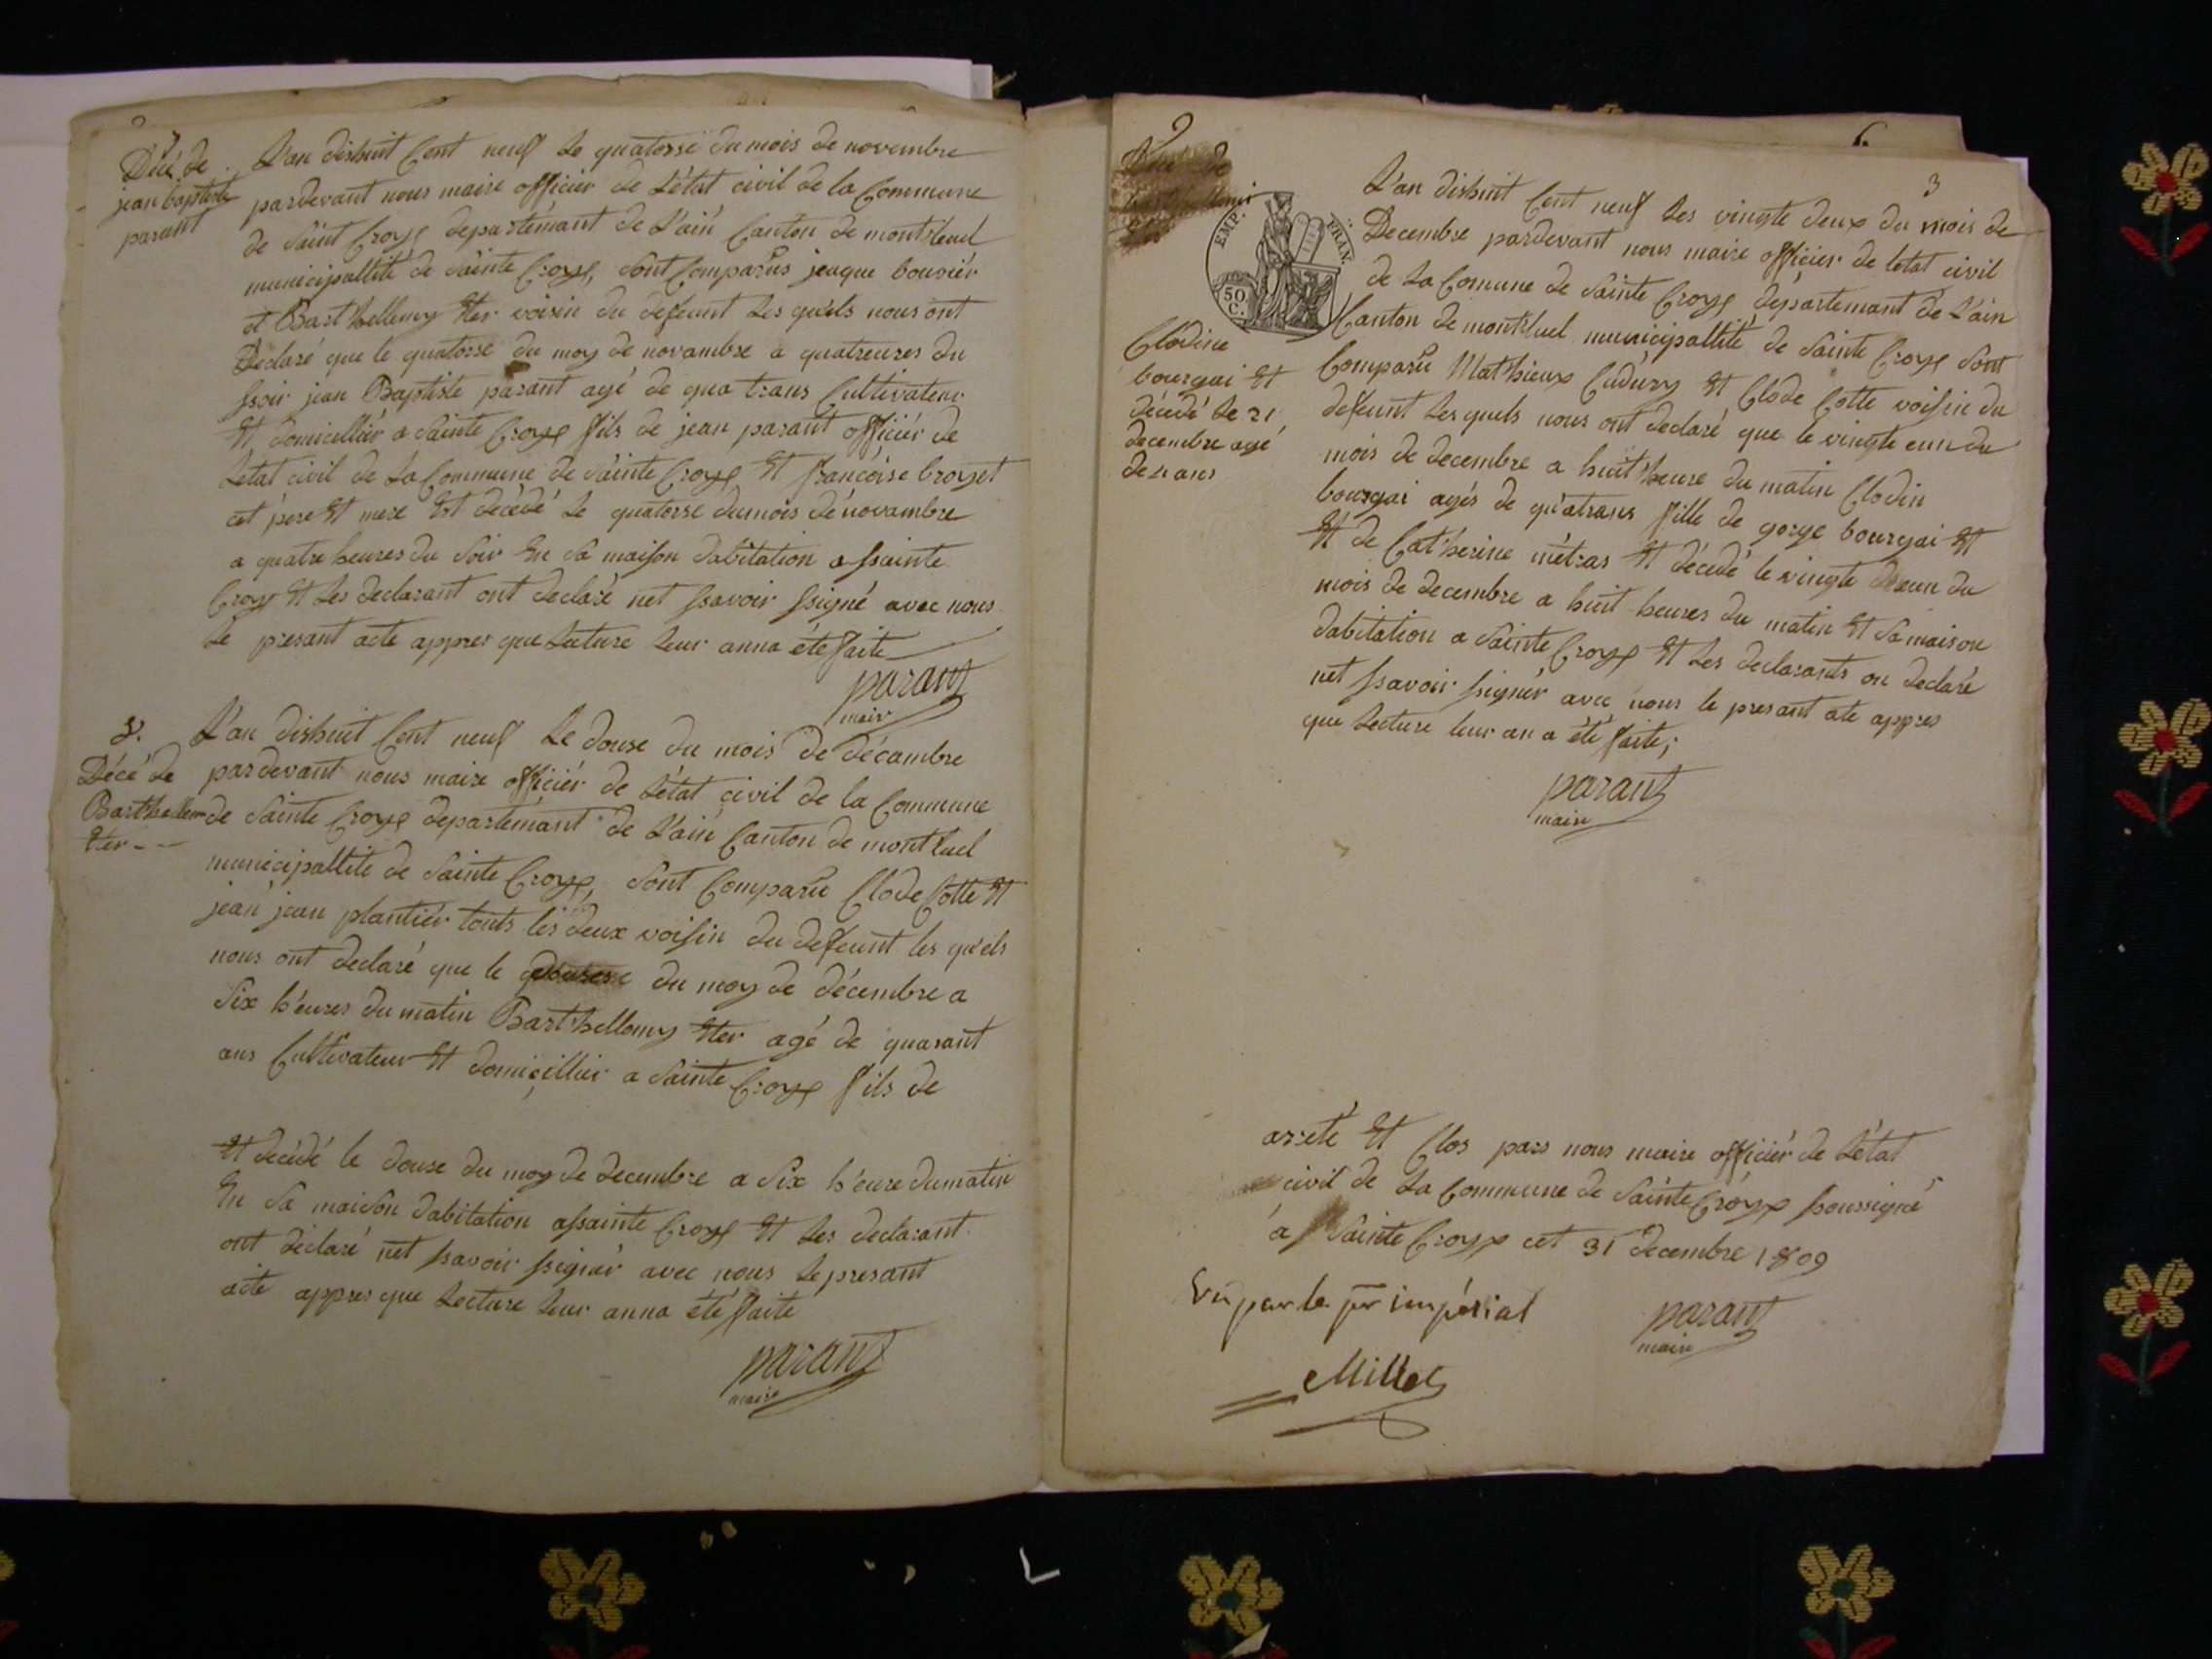 7
Décé de
jean baptiste
parant
L'an dishuit Cent neuf Le quatorse du mois de novembre
pardevant nous maire officier de L'état civil de la Commune
de Saint Croye departemant de L'ain Canton de montluel
municipallité de Sainte Croye, Sont Comparus jeaque bouviér
et Barthellemy Eter voisin du defeunt Les quéls nous ont
Declaré que le quatorse du moy de novambre a quatreures du
ssoir jean Baptiste parant agé de quatrans Cultivateur
Et domicilliér a Sainte Croye fils de jean parant officiér de
Létat civil de La Commune de Sainte Croye Et francóise broyet
cet pere Et mere Est décédé Le quatorse dumois dé novambre
a quatre heures du Soir En Sa maison dabitation a ssainte
Croye Et Les declarant ont declaré net ssavoir ssigné avec nous
Le presant acte appres que Lecture Leur anna été faite
parant
maire
8.
Décé de
Barthellem
Eter - -
L'an dishuit Cent neuf Le douse du mois de décambre
pardevant nous maire officiér de L'état civil de la Commune
de Sainte Croye departemant de L'ain Canton de montluel
municipallité de Sainte Croye, Sont Comparu Clode Cotte Et
jean jean plantiér touts les deux voisin du defeunt les quéls
nous ont declaré que le du moy de décembre a
Six h'eures du matin Barthellemy Eter agé de quarant
ans Cultivateur Et domicillier a Sainte Croye fils de
Et décédé le douse du moy de decembre a Six h'eure dumatin
En Sa maison dabitation assainte Croye Et Les declarant
ont déclaré net ssavoir ssignér avec nous Le presant
acte appres que Lecture Leur anna été faite
parant
maire
9
6.
3
Décé de
EMP. FRAN.
50
C.
Clodine
bourgai Et
décédé Le 21
decembre agé
de 4 ans
L'an dishuit Cent neuf Les vingte deux du mois de
Decembre pardevant nous maire officiér de létat civil
de La Comune de Sainte Croye départemant de L'ain
Canton de montluel municipallité de Sainte Croye Sont
Comparu Mathieux Cudury Et Clode Cotte voisin du
defeunt Les quels nous ont declaré que le vingte eun du
mois de decembre a huit heure du matin Clodin
bourgai agés de quatrans fille de gorge bourgai Et
Et de Catherine métras Et décédé le vingte eun du
mois de decembre a huit heures du matin Et Sa maison
dabitation a Sainte Croye Et Les declarants on declaré
net ssavoir ssignér avec nous le presant ate appres
que Lecture leur an a été faite;
parant
maire
arreté Et Clos pars nous maire officiér de L'état
civil de La Commune de Sainte Croye ssoussigné
a Sainte Croye cet 31 decembre 1809
parant
maire
Vu par le pr impérial
Millet